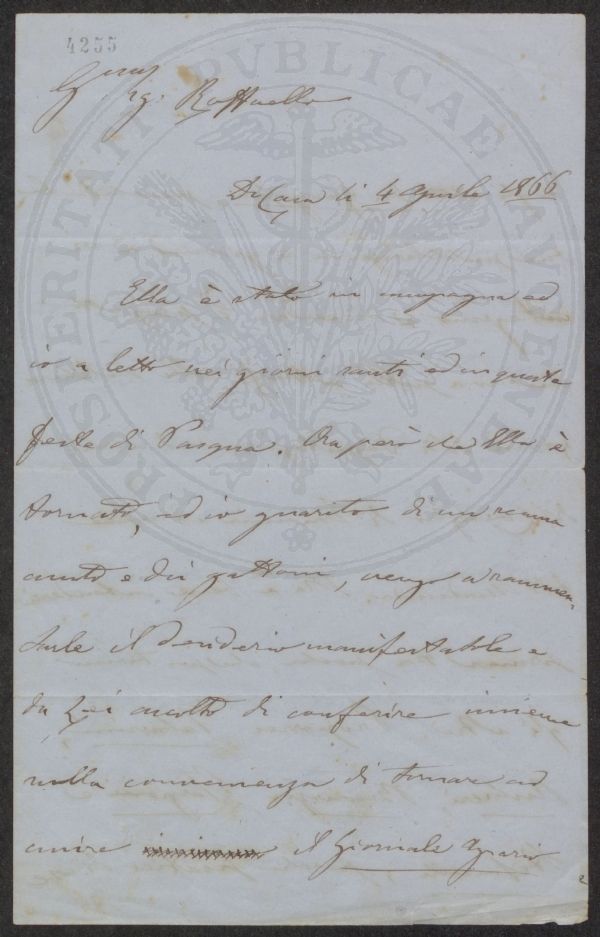 4255
PROSPERITATI PVBLICAE AVGENDAE
Sig. Raffaello
Di Casa li 4 Aprile 1866
Ella è stato in campagna ed
io a letto nei giorni santi ed in queste
feste di Pasqua. Ora però che Ella è
tornato, ed io guarito di un reuma
acuto e dei gattoni, vengo a rammen-
tarle il desiderio manifestatole e
da Lei accolto di conferire insieme
sulla convenienza di tornare ad
unire il Giornale Agrario